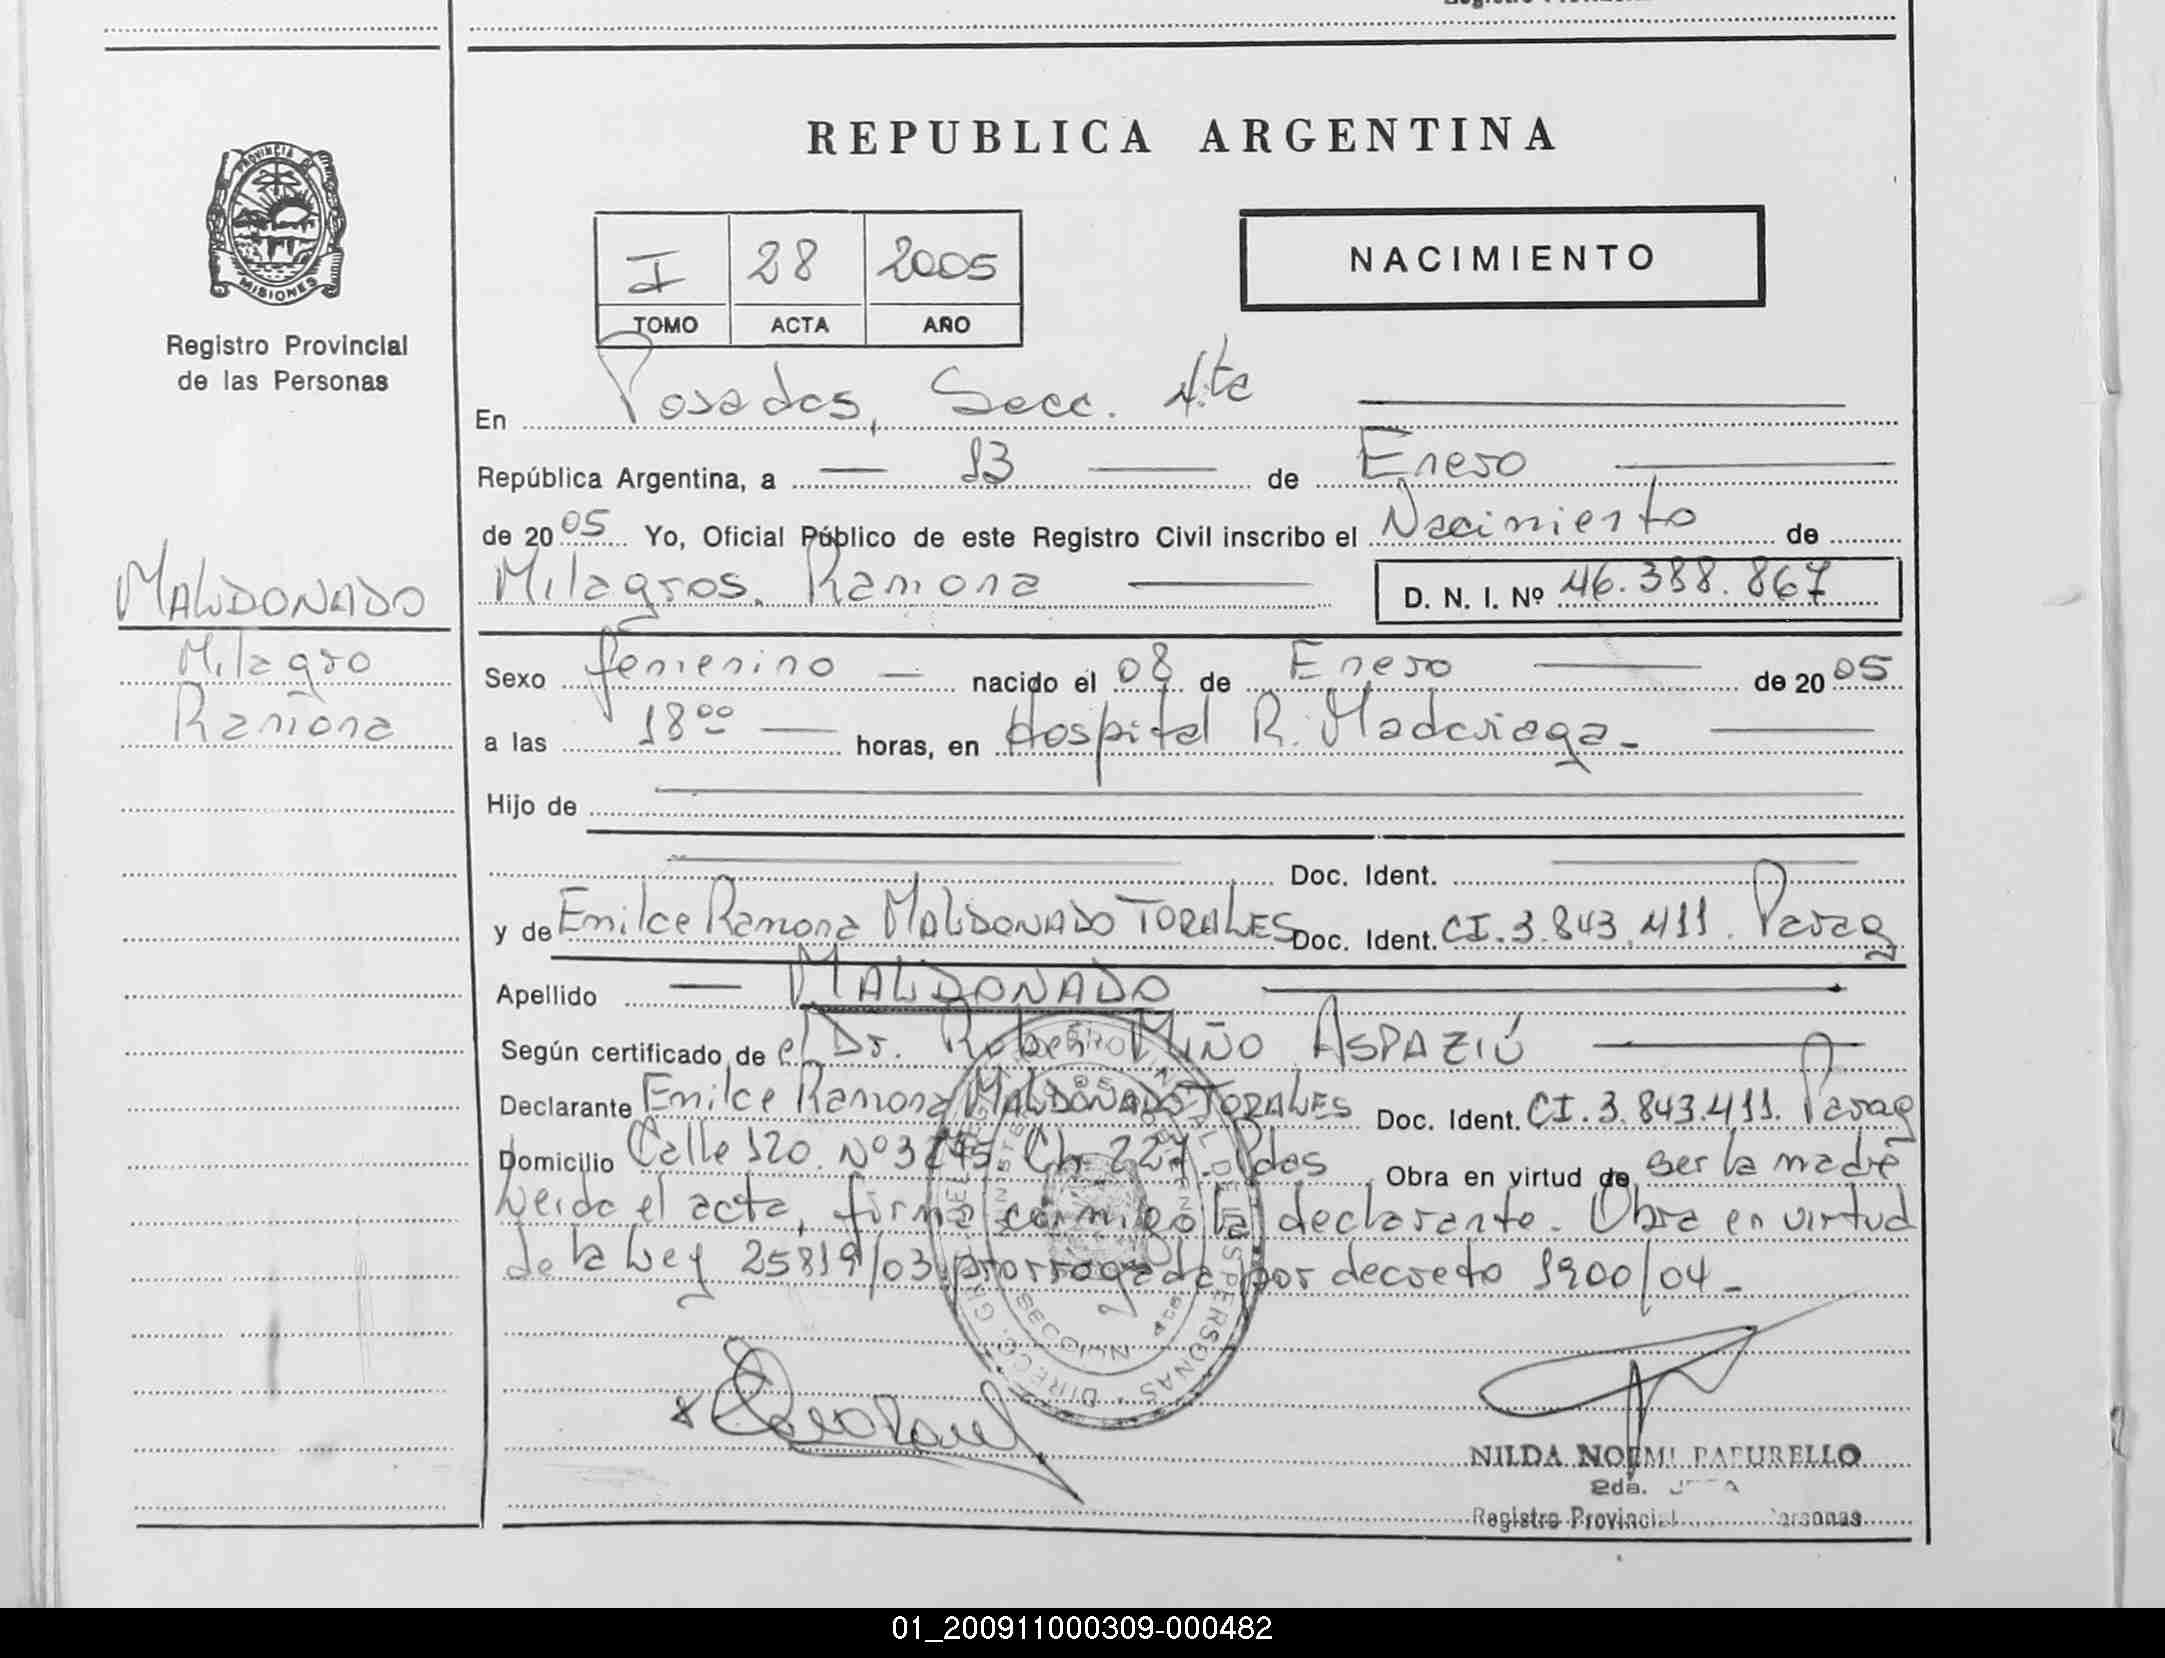 REPUBLICA ARGENTINA
PROVINCIA DE
MISIONES
Registro Provincial
de las Personas
I 28 2005
TOMO ACTA AÑO
NACIMIENTO
En Posadas, Secc. 4.ta
República Argentina, a 13 de Enero
de 2005 Yo, Oficial Público de este Registro Civil inscribo el Nacimiento de
Milagros Ramona D. N. I. Nº 46.388.867
MALDONADO
Milagro
Ramona
Sexo femenino nacido el 08 de Enero de 2005
a las 18 00 horas, en Hospital R. Madariaga.-
Hijo de
Doc. Ident.
y de Emilce Ramona MALDONADO TORALES Doc. Ident. CI. 3.843.411. Parag
Apellido MALDONADO
Según certificado de el Dr. Rubén MIÑO ASPAZIÚ
Declarante Emilce Ramona MALDONADO TORALES Doc. Ident. CI. 3.843.411. Parag
Domicilio Calle 120. Nº Ch. 227. Pdas Obra en virtud de ser la madre
Leída el acta, firma conmigo la declarante. Obra en virtud
de la Ley 25819/03 prorrogada por decreto 1900/04 -
NILDA NOEMI PAPURELLO
2da.
Registro Provincial Personas
01_200911000309-000482